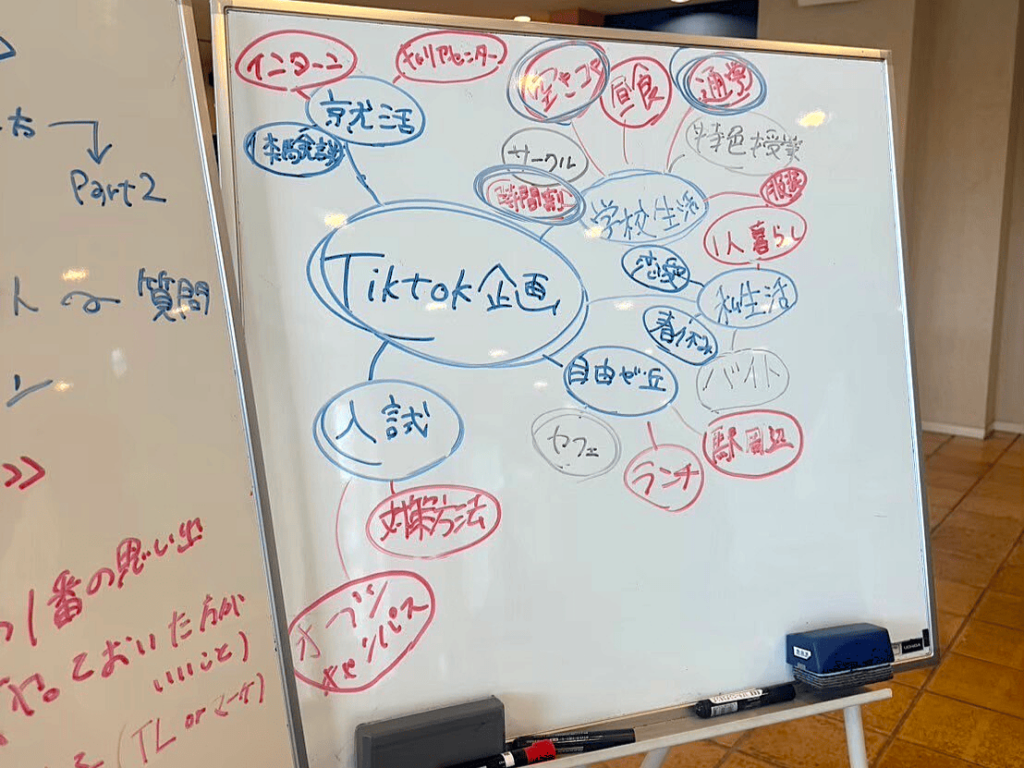 Part2
質問
1番の思い出
ておいた方が
いいこと)
(TL or マーケ)
インターン
キャリアセンター
就活
体験談
空きコマ
昼食
通学
特色授業
サークル
時間割
学校生活
服装
1人暮らし
恋愛
私生活
春休み
バイト
Tiktok企画
自由が丘
カフェ
ランチ
駅周辺
入試
対策方法
オープン
キャンパス